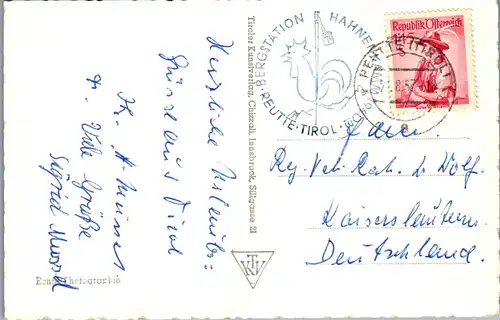 Herzliche Urlaubs=
grüsse aus Tirol
Viele Grüße
Sigrid
Echte Photographie
Tiroler Kunstverlag Chizzali, Innsbruck, Sillgasse 21
KTV
BERGSTATION HAHNEN
REUTTE-TIROL
REUTTE (TIROL)
Republik Österreich
Fam.
Reg. Vet. Rat. Dr. Wolf.
Kaiserslautern.
Deutschland.